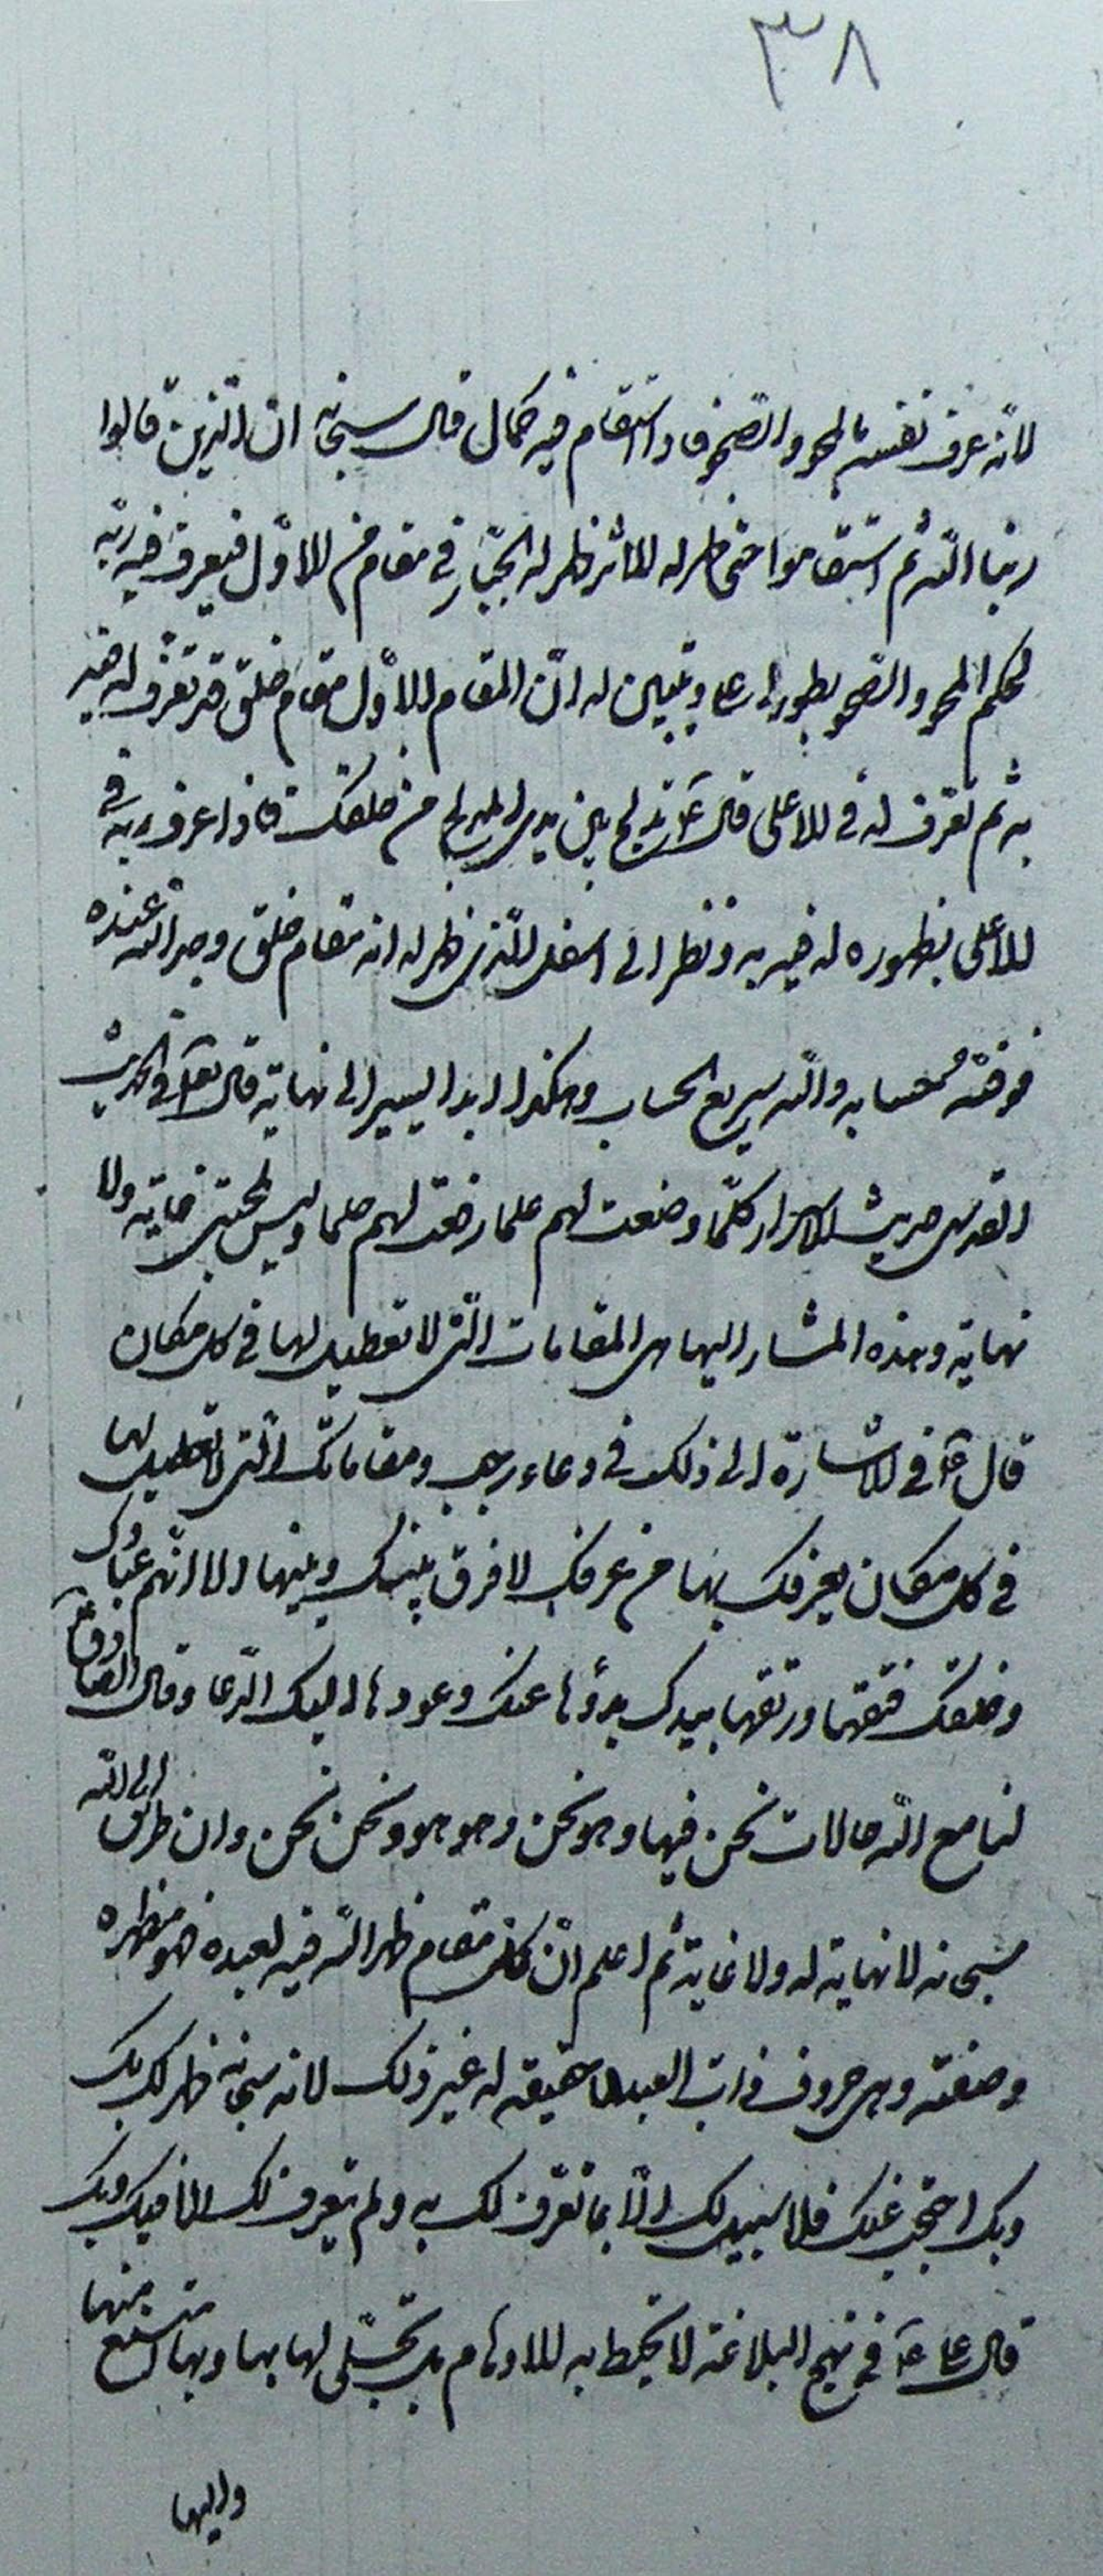 ٣٨
لانه عرف نفسه بالمحو والصحو فاذا استقام فيه كما قال سبحانه ان الذين قالوا
ربنا الله ثم استقاموا حتى ظهر له الاثر ظهر له الجبار في مقام فوق الاول فيعرف فيه ربه
بحكم المحو والصحو بطور اعلى ويتبين له ان المقام الاول مقام خلق قد تعرف له فيه
به ثم تعرف له في الاعلى قال ع تدلج بين يدي المدلج من خلقك فاذا عرف ربه في
الاعلى بظهوره له فيه به ونظر الى اسفل الذي ظهر له انه مقام خلق وجد الله عنده
فوفيه حسابه والله سريع الحساب وهكذا ابدا يسير الى نهاية قال تعالى في الحديث
القدسي حديث الاسرار كلما وضعت لهم علما رفعت لهم حلما وليس لمحبتي غاية ولا
نهاية وهذه المشار اليها هي المقامات التي لا تعطيل لها في كل مكان
قال ع في الاشارة الى ذلك في دعاء رجب ومقاماتك التي لا تعطيل لها
في كل مكان يعرفك بها من عرفك لا فرق بينك وبينها الا انهم عبادك
وخلقك فتقها ورتقها بيدك بدؤها منك وعودها اليك الدعا وقال الصادق ع
لنا مع الله حالات نحن فيها هو وهو نحن وهو هو ونحن نحن وان طريق الى الله
سبحانه لا نهاية له ولا غاية ثم اعلم ان كل مقام ظهر الله فيه لعبده فهو مظهره
وصفته وهي حروف ذات العبد لا حقيقة له غير ذلك لانه سبحانه ظهر لك بك
وبك احتجب عنك فلا سبيل لك الا بما تعرف لك به ولم يتعرف لك الا فيك وبك
قال علي ع في نهج البلاغة لا تحيط به الاوهام بل تجلى لها بها وبها امتنع منها
واليها